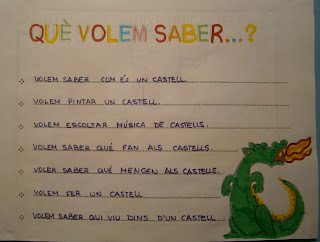 QUÈ VOLEM SABER...?
VOLEM SABER COM ÉS UN CASTELL.
VOLEM PINTAR UN CASTELL.
VOLEM ESCOLTAR MÚSICA DE CASTELLS.
VOLEM SABER QUÈ FAN ALS CASTELLS.
VOLER SABER QUÈ MENGEN ALS CASTELLS.
VOLEM FER UN CASTELL
VOLEM SABER QUI VIU DINS D'UN CASTELL